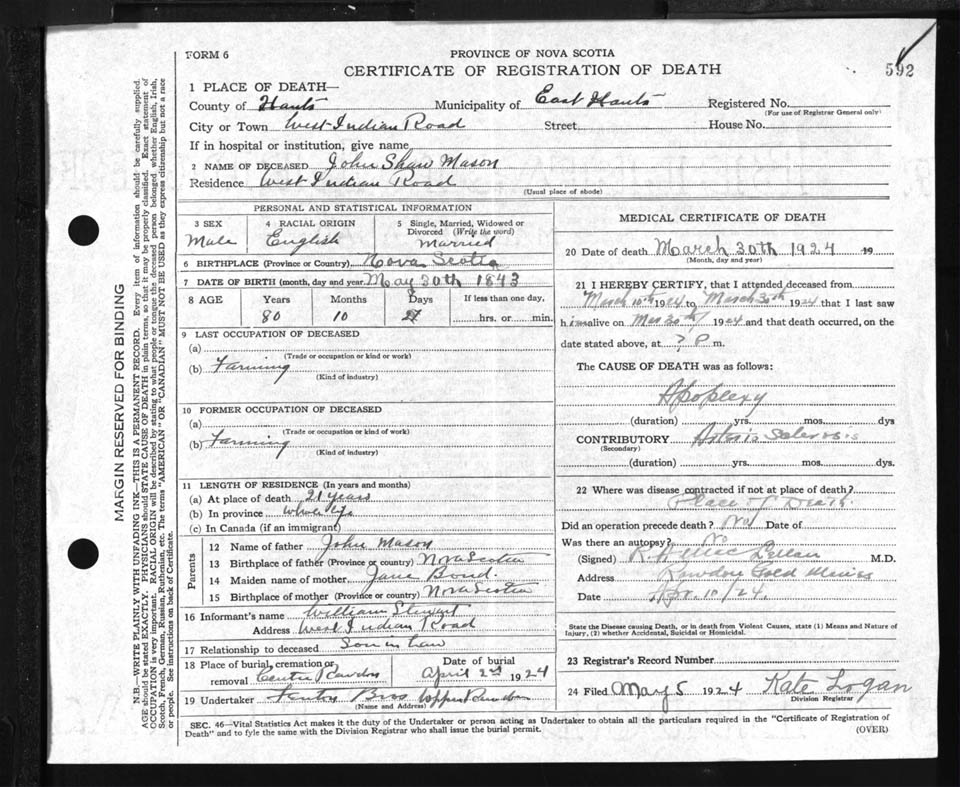 FORM 6
PROVINCE OF NOVA SCOTIA
CERTIFICATE OF REGISTRATION OF DEATH
592
1 PLACE OF DEATH—
County of Hants Municipality of East Hants Registered No.
(For use of Registrar General only)
City or Town West Indian Road Street House No.
If in hospital or institution, give name
2 NAME OF DECEASED John Shaw Mason
Residence West Indian Road
(Usual place of abode)
PERSONAL AND STATISTICAL INFORMATION
3 SEX 4 RACIAL ORIGIN 5 Single, Married, Widowed or
Divorced (Write the word)
Male English Married
6 BIRTHPLACE (Province or Country) Nova Scotia
7 DATE OF BIRTH (month, day and year) May 30th 1843
8 AGE Years Months Days If less than one day,
80 10 hrs. or min.
9 LAST OCCUPATION OF DECEASED
(a)
(Trade or occupation or kind of work)
(b) Farming
(Kind of industry)
10 FORMER OCCUPATION OF DECEASED
(a)
(Trade or occupation or kind of work)
(b) Farming
(Kind of industry)
11 LENGTH OF RESIDENCE (In years and months)
(a) At place of death 21 years
(b) In province whole life
(c) In Canada (if an immigrant)
Parents
12 Name of father John Mason
13 Birthplace of father (Province or country) Nova Scotia
14 Maiden name of mother Jane Bond.
15 Birthplace of mother (Province or country) Nova Scotia
16 Informant's name William Stewart
Address West Indian Road
17 Relationship to deceased Son in Law
18 Place of burial, cremation or Date of burial
removal Centre Rawdon April 2nd 1924
19 Undertaker Bros Upper Rawdon
(Name and Address)
MEDICAL CERTIFICATE OF DEATH
20 Date of death March 30th 1924 19
(Month, day and year)
21 I HEREBY CERTIFY, that I attended deceased from
March 10th 1924 to March 30th 1924 that I last saw
him alive on Mar 30th 1924 and that death occurred, on the
date stated above, at ? P m.
The CAUSE OF DEATH was as follows:
Apoplexy
(duration) yrs. mos. dys
CONTRIBUTORY Arterio Sclerosis
(Secondary)
(duration) yrs. mos. dys.
22 Where was disease contracted if not at place of death?
Place of Death.
Did an operation precede death? No Date of
Was there an autopsy? No
(Signed) M.D.
Address Rawdon Gold Mines
Date Apr. 10/24.
State the Disease causing Death, or in death from Violent Causes, state (1) Means and Nature of
Injury, (2) whether Accidental, Suicidal or Homicidal.
23 Registrar's Record Number
24 Filed May 5 1924 Kate Logan
Division Registrar
SEC. 46—Vital Statistics Act makes it the duty of the Undertaker or person acting as Undertaker to obtain all the particulars required in the "Certificate of Registration of
Death" and to fyle the same with the Division Registrar who shall issue the burial permit.
(OVER)
MARGIN RESERVED FOR BINDING
N.B.—WRITE PLAINLY WITH UNFADING INK—THIS IS A PERMANENT RECORD. Every item of information should be carefully supplied.
AGE should be stated EXACTLY. PHYSICIANS should STATE CAUSE OF DEATH in plain terms, so that it may be properly classified. Exact statement of
OCCUPATION is very important. RACIAL ORIGIN will be described by stating to what people or tongue the deceased person belonged, whether English, Irish,
Scotch, French, German, Russian, Ruthenian, etc. The terms "AMERICAN" OR "CANADIAN" MUST NOT BE USED as they express citizenship but not a race
or people. See instructions on back of Certificate.